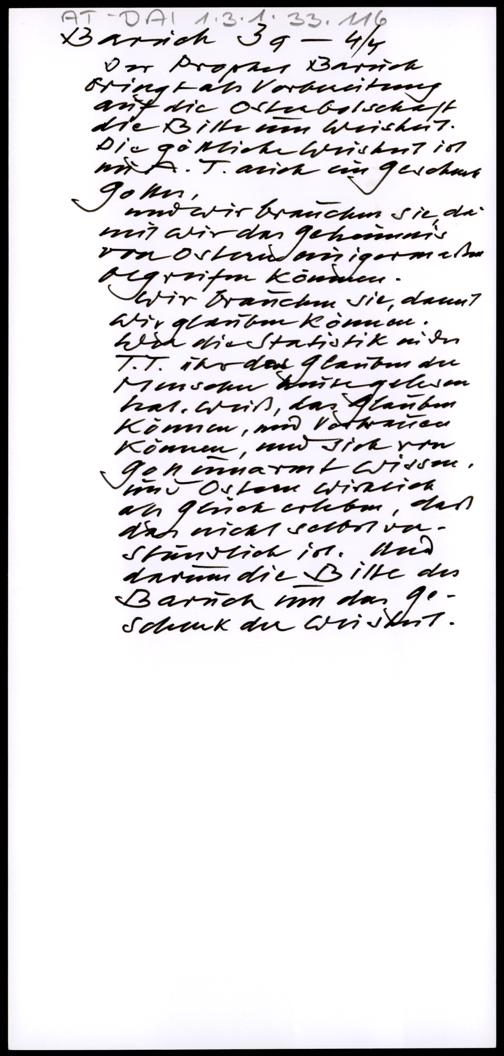 AT-DAI 1.3.1.33.116
Baruch 3,9 – 4/4
Der Prophet Baruch
bringt als Vorbereitung
auf die Osterbotschaft
die Bitte um Weisheit.
Die göttliche Weisheit ist
im A. T. auch ein Geschenk
Gottes,
und wir brauchen sie, da-
mit wir das Geheimnis
von Ostern einigermaßen
begreifen können.
Wir brauchen sie, damit
wir glauben können.
Wer die Statistik in der
T.T. über das Glauben der
Menschen heute gelesen
hat, weiß, das Glauben
können, und Vertrauen
können, und sich von
Gott umarmt wissen,
und Ostern wirklich
als Glück erleben, daß
das nicht selbstver-
ständlich ist. Und
darum die Bitte des
Baruch um das Ge-
schenk der Weisheit.